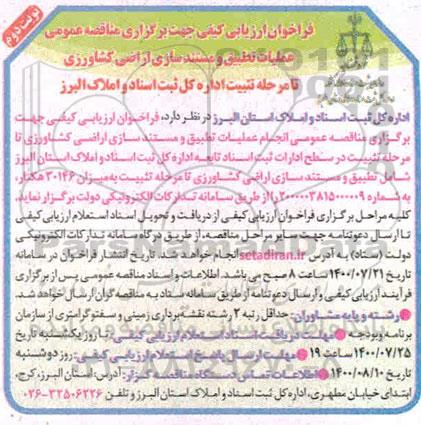 نوبت دوم
فراخوان ارزیابی کیفی جهت برگزاری مناقصه عمومی
عملیات تطبیق و مستندسازی اراضی کشاورزی
تا مرحله تثبیت اداره کل ثبت اسناد و املاک البرز
اداره کل ثبت اسناد و املاک استان البرز در نظر دارد، فراخوان ارزیابی کیفی جهت
برگزاری مناقصه عمومی انجام عملیات تطبیق و مستند سازی اراضی کشاورزی تا
مرحله تثبیت در سطح ادارات ثبت اسناد تابعه اداره کل ثبت اسناد و املاک استان البرز
شامل تطبیق و مستندسازی اراضی کشاورزی تا مرحله تثبیت به میزان ۳۰۱۴۶ هکتار،
به شماره ۲۰۰۰۰۰۳۸۱۵۰۰۰۰۰۹ را از طریق سامانه تدارکات الکترونیکی دولت برگزار نماید.
کلیه مراحل برگزاری فراخوان ارزیابی کیفی از دریافت و تحویل اسناد استعلام ارزیابی کیفی
تا ارسال دعوتنامه جهت سایر مراحل مناقصه، از طریق درگاه سامانه تدارکات الکترونیکی
دولت (ستاد) به آدرس setadiran.ir انجام خواهد شد. تاریخ انتشار فراخوان در سامانه
تاریخ ۱۴۰۰/۰۷/۲۱ ساعت ۸ صبح می باشد. اطلاعات و اسناد مناقصه عمومی پس از برگزاری
فرآیند ارزیابی کیفی و ارسال دعوتنامه از طریق سامانه ستاد به مناقصه گران ارسال خواهد شد.
رشته و پایه مشاوران: حداقل رتبه ۲ رشته نقشه برداری زمینی و سنتوگرامتری از سازمان
برنامه وبودجه مهلت دریافت اسناد استعلام ارزیابی کیفی: تا روز یکشنبه تاریخ
۱۴۰۰/۰۷/۲۵ ساعت ۱۹ مهلت ارسال پاسخ استعلام ارزیابی کیفی: روز دوشنبه
تاریخ ۱۴۰۰/۰۸/۱۰ اطلاعات تماس دستگاه مناقصه گزار: آدرس: استان البرز، کرج،
ابتدای خیابان مطهری، اداره کل ثبت اسناد و املاک استان البرز و تلفن ۳۲۵۰۶۲۲۶-۰۲۶